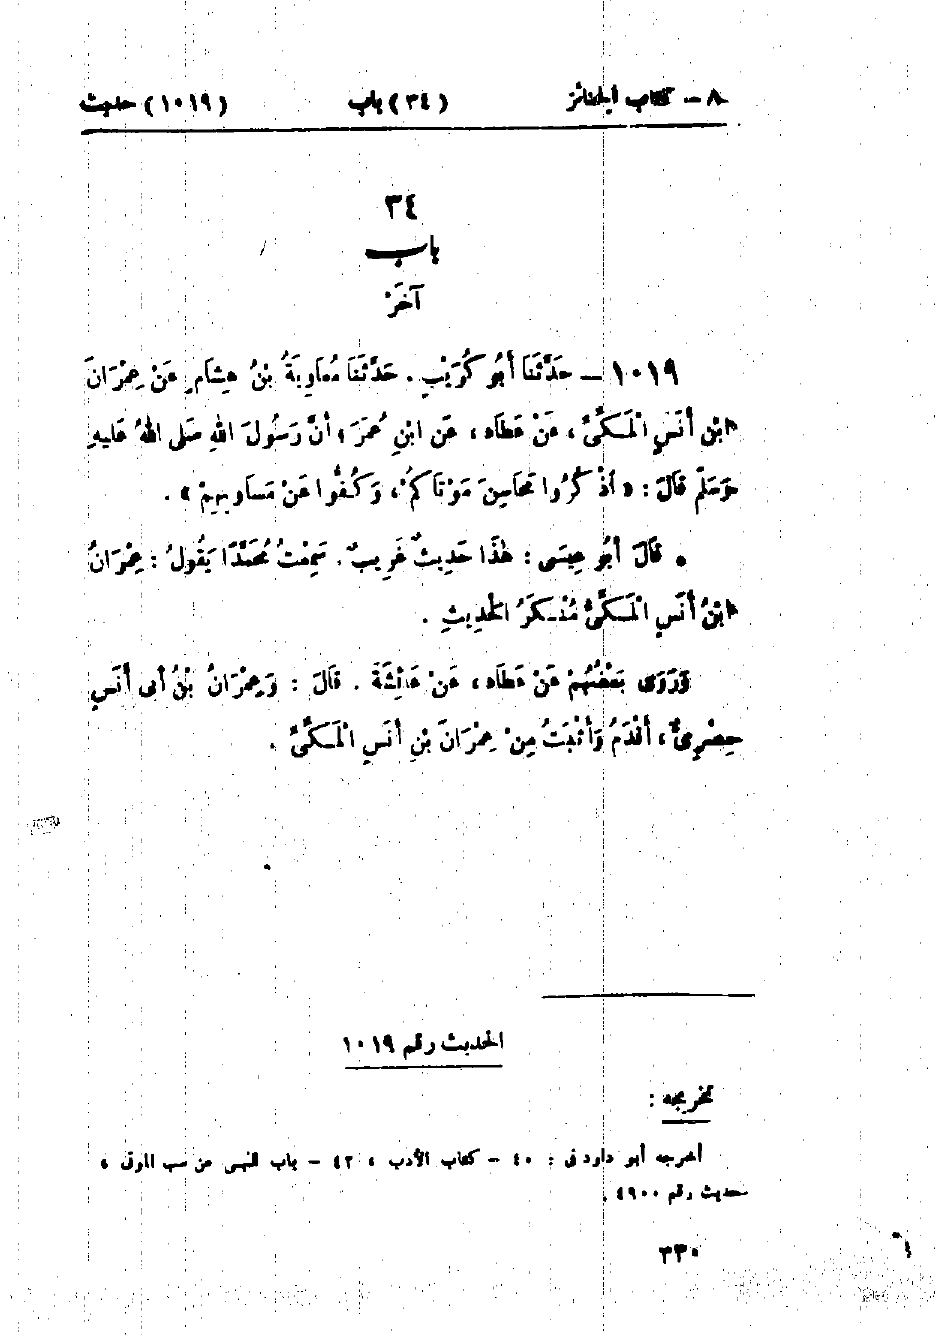 ٨ – كتاب الجنائز (٣٤) باب (١٠١٩) حديث
٣٤
باب
آخَرُ
١٠١٩ – حَدَّثَنَا أَبُو كُرَيْبٍ . حَدَّثَنَا مُعَاوِيَةُ بْنُ هِشَامٍ عَنْ عِمْرَانَ
ابْنِ أَنَسٍ الْمَكِّيِّ ، عَنْ عَطَاءٍ ، عَنِ ابْنِ عُمَرَ ؛ أَنَّ رَسُولَ اللهِ صَلى اللهُ عَليهِ
وَسَلمَ قَالَ : « اذْكُرُوا مَحَاسِنَ مَوْتَاكُمْ ، وَكُفُّوا عَنْ مَسَاوِيهِمْ » .
• قَالَ أَبُو عِيسَى : هٰذَا حَدِيثٌ غَرِيبٌ . سَمِعْتُ مُحَمَّدًا يَقُولُ : عِمْرَانُ
ابْنُ أَنَسٍ الْمَكِّيُّ مُنْكَرُ الْحَدِيثِ .
وَرَوَى بَعْضُهُمْ عَنْ عَطَاءٍ ، عَنْ عَائِشَةَ . قَالَ : وَعِمْرَانُ بْنُ أَبِى أَنَسٍ
مِصْرِيٌّ ، أَقْدَمُ وَأَثْبَتُ مِنْ عِمْرَانَ بْنِ أَنَسٍ الْمَكِّيِّ .
الحديث رقم ١٠١٩
تخريجه :
أخرجه أبو داود فى : ٤٠ – كتاب الأدب ، ٤٢ – باب النهى عن سب الموتى ،
حديث رقم ٤٩٠٠ .
٣٣٠